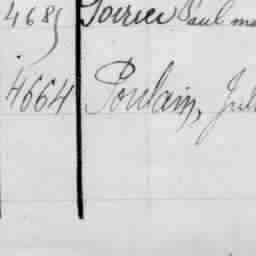 4685 Poirier Paul ma
4664 Poulain, Jul